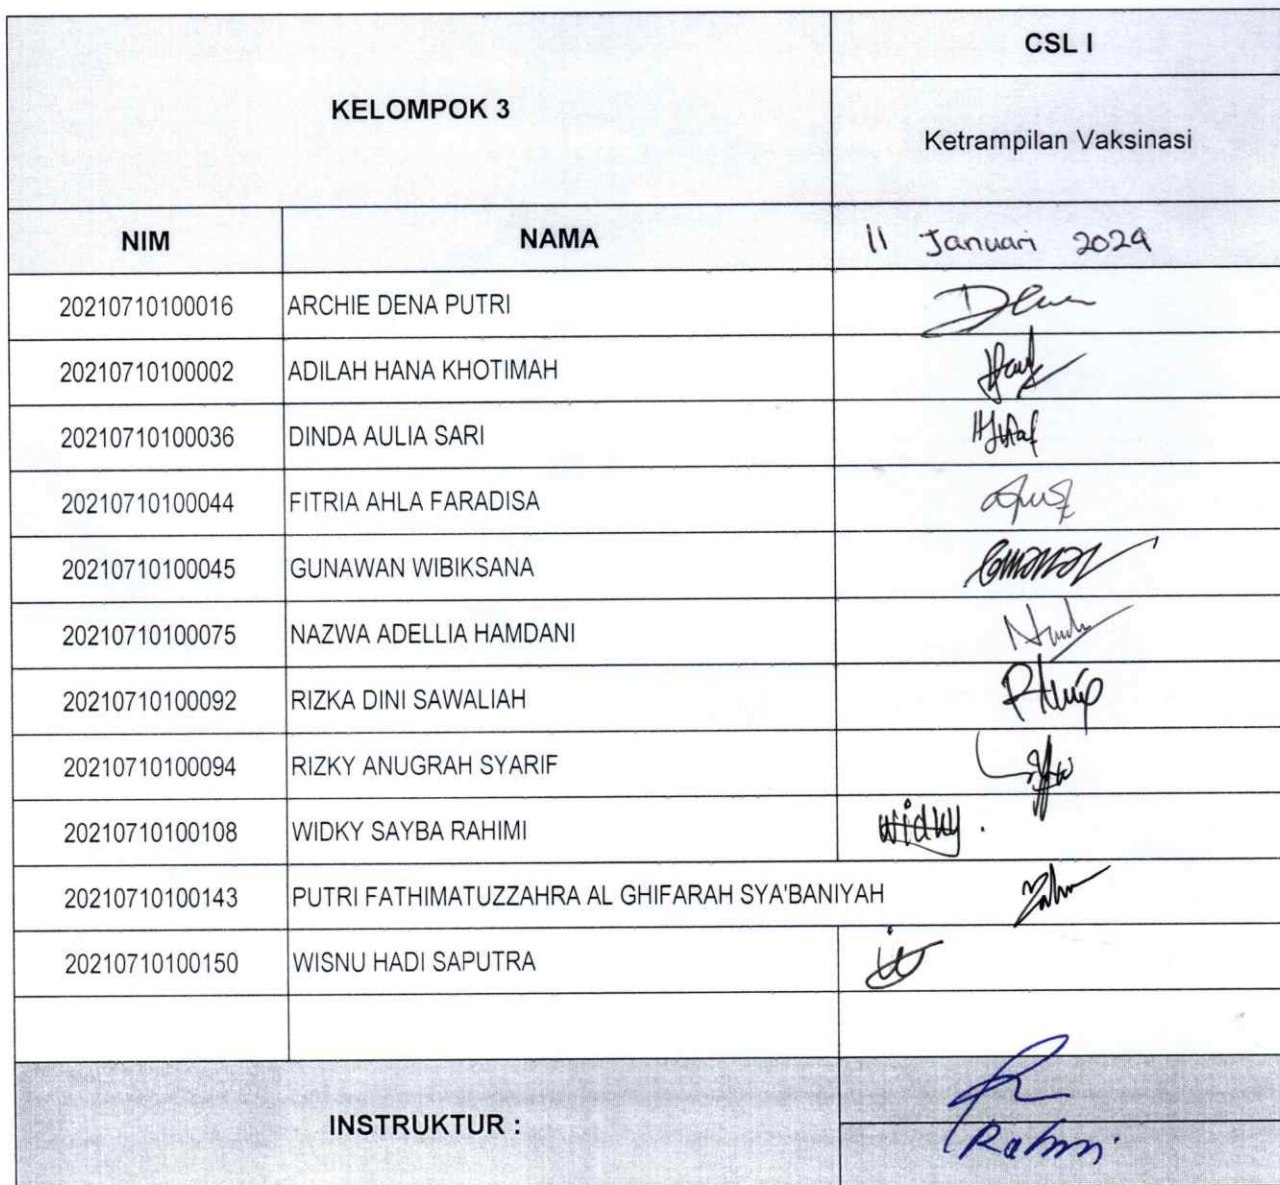 CSL I
KELOMPOK 3
Ketrampilan Vaksinasi
NIM NAMA 11 Januari 2024
20210710100016 ARCHIE DENA PUTRI
20210710100002 ADILAH HANA KHOTIMAH
20210710100036 DINDA AULIA SARI
20210710100044 FITRIA AHLA FARADISA
20210710100045 GUNAWAN WIBIKSANA
20210710100075 NAZWA ADELLIA HAMDANI
20210710100092 RIZKA DINI SAWALIAH
20210710100094 RIZKY ANUGRAH SYARIF
20210710100108 WIDKY SAYBA RAHIMI widky.
20210710100143 PUTRI FATHIMATUZZAHRA AL GHIFARAH SYA'BANIYAH
20210710100150 WISNU HADI SAPUTRA
INSTRUKTUR :